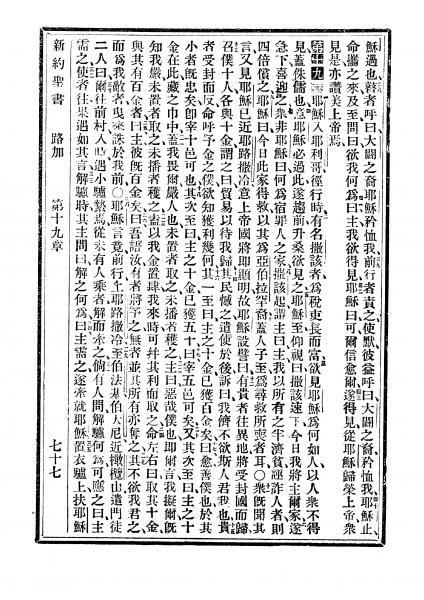 穌過也瞽者呼曰大闢之裔耶穌矜恤我前行者責之使默彼益呼曰大闢之裔矜恤我耶穌止
命攜之來及至問曰欲我何爲曰主我欲得見耶穌曰可爾信愈爾遂得見從耶穌歸榮上帝衆
見是亦讚美上帝焉
第十九章耶穌入耶利哥徑行時有名撒該者爲稅吏長而富欲見耶穌爲何如人以人衆不得
見蓋侏儒也意耶穌必過此遂趨前升桑欲見之耶穌至仰視曰撒該速下今日我將主爾家遂
急下喜迎之衆非耶穌曰何爲宿罪人之家撒該起謂主曰主我以所有之半濟貧誣詐人者則
四倍償之耶穌曰今日此家得救以其爲亞伯拉罕裔蓋人子至爲尋救所喪者耳○衆旣聞其
言又見耶穌已近耶路撒冷意上帝國將即顯明故耶穌設譬曰有貴者往異地將受封國而歸
召僕十人各與十金謂之曰貿易以待我歸其民憾之遣使於後訴曰我儕不欲斯人君我也貴
者受封而反命呼予金之僕欲知獲利幾何其一至曰主之十金已獲百金矣曰愈善僕也於其
小者旣忠矣卽宰十邑可也其次至曰主之十金已獲五十曰宰五邑可矣又其次至曰主之十
金在此藏之巾中蓋我畏爾嚴人也未置者取之未播者穫之主曰惡哉僕也卽爾言我擬爾旣
知我嚴未置者取之未播者穫之盍以我金置肆我來時可幷其利而取之命左右曰取其十金
與其有百金者曰主彼旣百金矣曰吾語汝有者將予之無者並其所有亦奪之其不欲我君之
而爲我敵者曳來誅於我前○耶穌言竟前行上耶路撒冷至伯法基伯大尼近橄欖山遣門徒
二人曰爾往前村入時遇小驢縶焉從未有人乘者解而牽之倘有人問解驢何爲可應之曰主
需之使者往果遇如其言解驢時其主問曰解之何爲曰主需之遂牽就耶穌置衣驢上扶耶穌
新約聖書 路加 第十九章 七十七